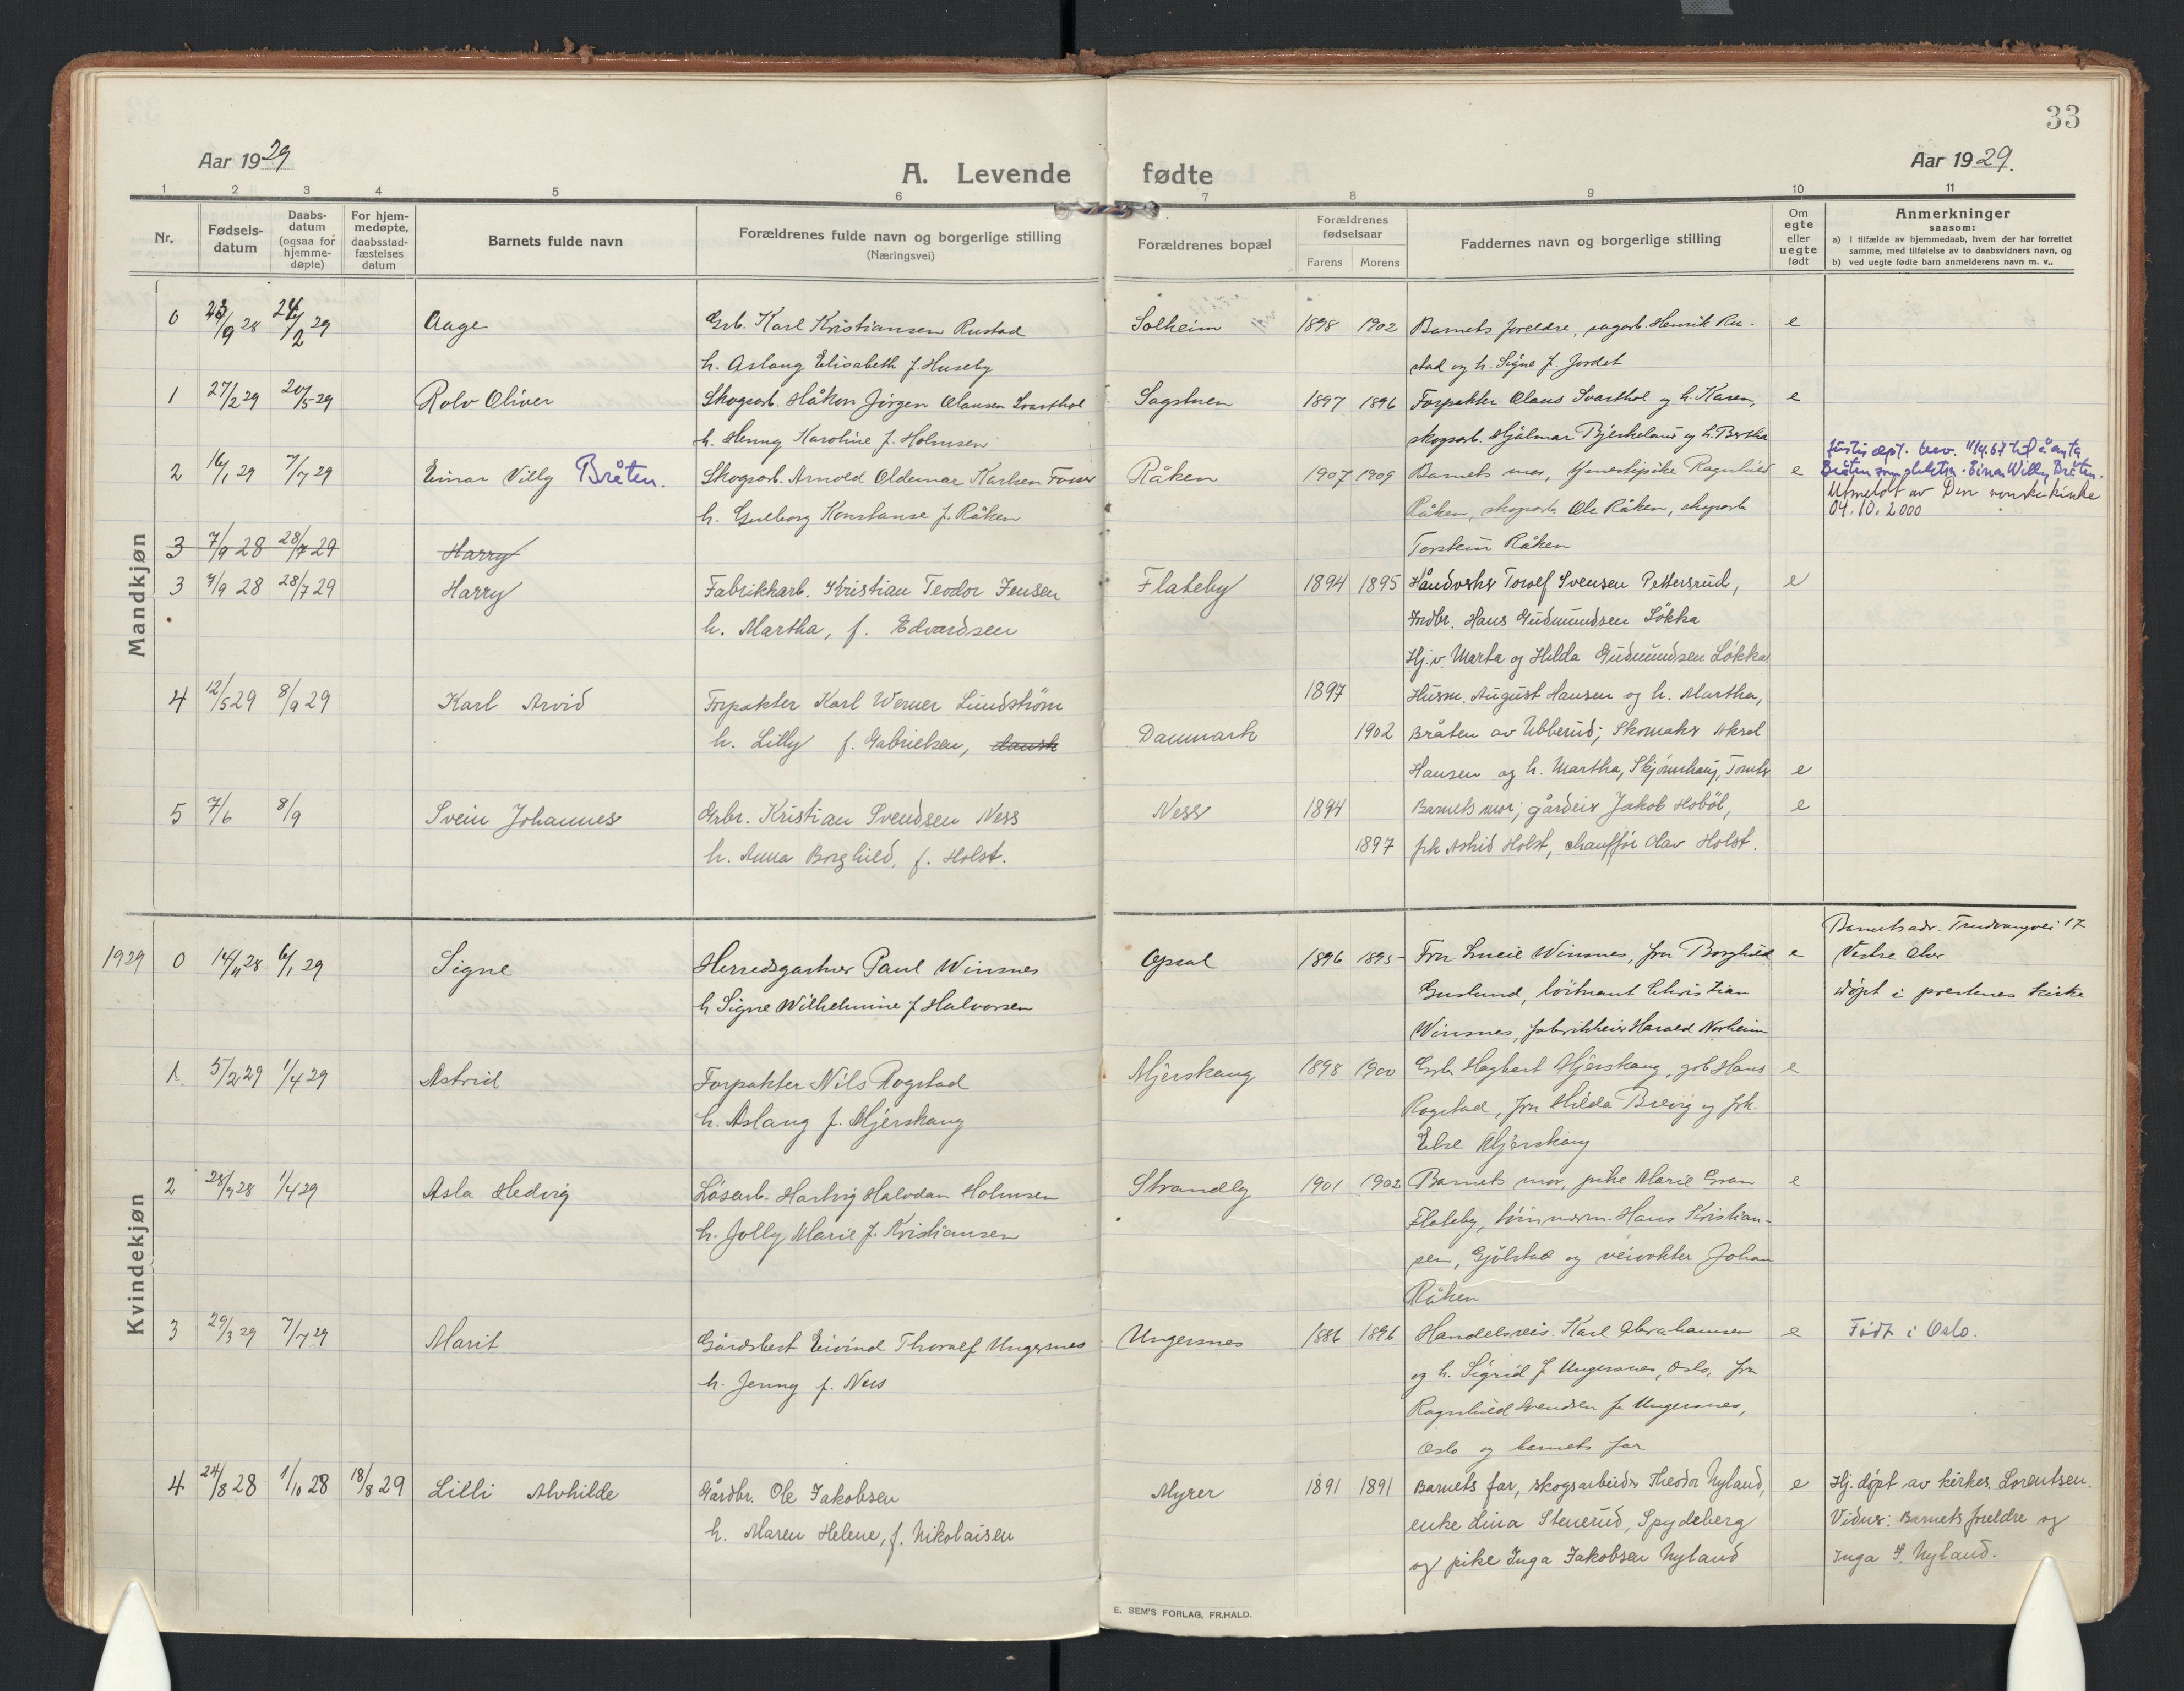 33
Aar 1929
A. Levende fødte
Aar 1929.
1 2 3 4 5 6 7 8 9 10 11
Nr.
Fødsels-datum
Daabs-datum (ogsaa for hjemme-døpte)
For hjem-medøpte, daabsstad-fæstelses datum
Barnets fulde navn
Forældrenes fulde navn og borgerlige stilling
(Næringsvei)
Forældrenes bopæl
Forældrenes fødselsaar
Farens Morens
Faddernes navn og borgerlige stilling
Om egte eller uegte født
Anmerkninger
saasom:
a) i tilfælde av hjemmedaab, hvem der har forrettet
samme, med tilføielse av to daabsvidners navn, og
b) ved uegte fødte barn anmelderens navn m. v..
Mandkjøn
0 23/9 28 24/2 29 Aage Grb. Karl Kristiansen Rustad Solheim 1898 1902 Barnets foreldre, sagarb. Henrik Ru- e
h. Aslaug Elisabeth f. Huseby stad og h. Signe f. Jordet
1 27/2 29 20/5 29 Rolv Oliver Skogsarb. Håkon Jørgen Olausen Svarthol Sagstuen 1897 1896 Forpakter Olaus Svarthol og h. Karen, e
h. Henny Karoline f. Holmsen skogsarb. Hjalmar Bjerkelund og h. Bertha
2 16/1 29 7/7 29 Einar Villy Bråten. Skogsarb. Arnold Oldemar Karlsen Foss Råken 1907 1909 Barnets mor, tjenestepike Ragnhild e
Justisdept. bev. 11/4.67 til å anta
Bråten som slektsn. Einar Willy Bråten.
Utmeldt av Den norske kirke
04.10.2000
h. Gudborg Konstanse f. Råken Råken, skogsarb. Ole Råken, skogsarb.
3 7/9 28 28/7 29 Harry Torstein Råken
3 7/9 28 28/7 29 Harry Fabrikkarb. Kristian Teodor Jensen Flateby 1894 1895 Håndverker Torolf Svensen Pettersrud, e
h. Martha, f. Edvardsen Indbr. Hans Gudmundsen Løkka
Hj.v. Marta og Hilda Gudmundsen Løkka
4 12/5 29 8/9 29 Karl Arvid Forpakter Karl Werner Lundstrøm 1897 Husm. August Hansen og h. Martha,
h. Lilly f. Gabrielsen, dansk Danmark 1902 Bråten av Ubberud; Skomaker Aksel
Hansen og h. Martha, Skjønnhaug, Tomter e
5 7/6 8/9 Svein Johannes Grbr. Kristian Svendsen Ness Ness 1894 Barnets mor; gårdeier Jakob Hobøl, e
h. Anna Borghild, f. Holst. 1897 frk Astrid Holst, chauffør Olav Holst.
Kvindekjøn
1929 0 14/11 28 6/1 29 Signe Herredsgartner Paul Winsnes Opsal 1896 1895 Fru Lucie Winsnes, fru Borghild e
Barnets adr. Trudvangvei 17
Vestre Aker
Døpt i prestenes kirke
h Signe Wilhelmine f Halvorsen Guslund, løitnant Christian
Winsnes, fabrikkeier Harald Norheim
1. 5/2 29 1/4 29 Astrid Forpakter Nils Rogstad Mjerskaug 1898 1900 Grb. Hagbart Mjerskaug, grb Hans e
h. Aslaug f. Mjerskaug Rogstad, fru Hilda Brevig og frk.
Else Mjerskaug
2 28/9 28 1/4 29 Asla Hedvig Løsarb. Hartvig Halvdan Holmsen Strandby 1901 1902 Barnets mor, pike Marie Gran e
h. Jolly Marie f. Kristiansen Flateby, tømmerm. Hans Kristian-
sen, Gjølstad og veivokter Johan
Råken
3 29/3 29 7/7 29 Marit Gårdsbest Eivind Thoralf Ungersnes Ungersnes 1886 1896 Handelsreis. Karl Abrahamsen e Født i Oslo.
h. Jenny f. Nes og h. Sigrid f Ungersnes, Oslo, fru
Ragnhild Svendsen f. Ungersnes,
Oslo og barnets far
4 24/8 28 1/10 28 18/8 29 Lilli Alvhilde Gårdbr. Ole Jakobsen Myrer 1891 1891 Barnets far, skogsarbeider Theodor Nyland, e Hj. døpt av kirkes. Lorentsen.
h. Maren Helene, f. Nikolaisen enke Lina Stenerud, Spydeberg Vidner: Barnets foreldre og
og pike Inga Jakobsen Nyland Inga J. Nyland.
E. SEM'S FORLAG, FR.HALD.